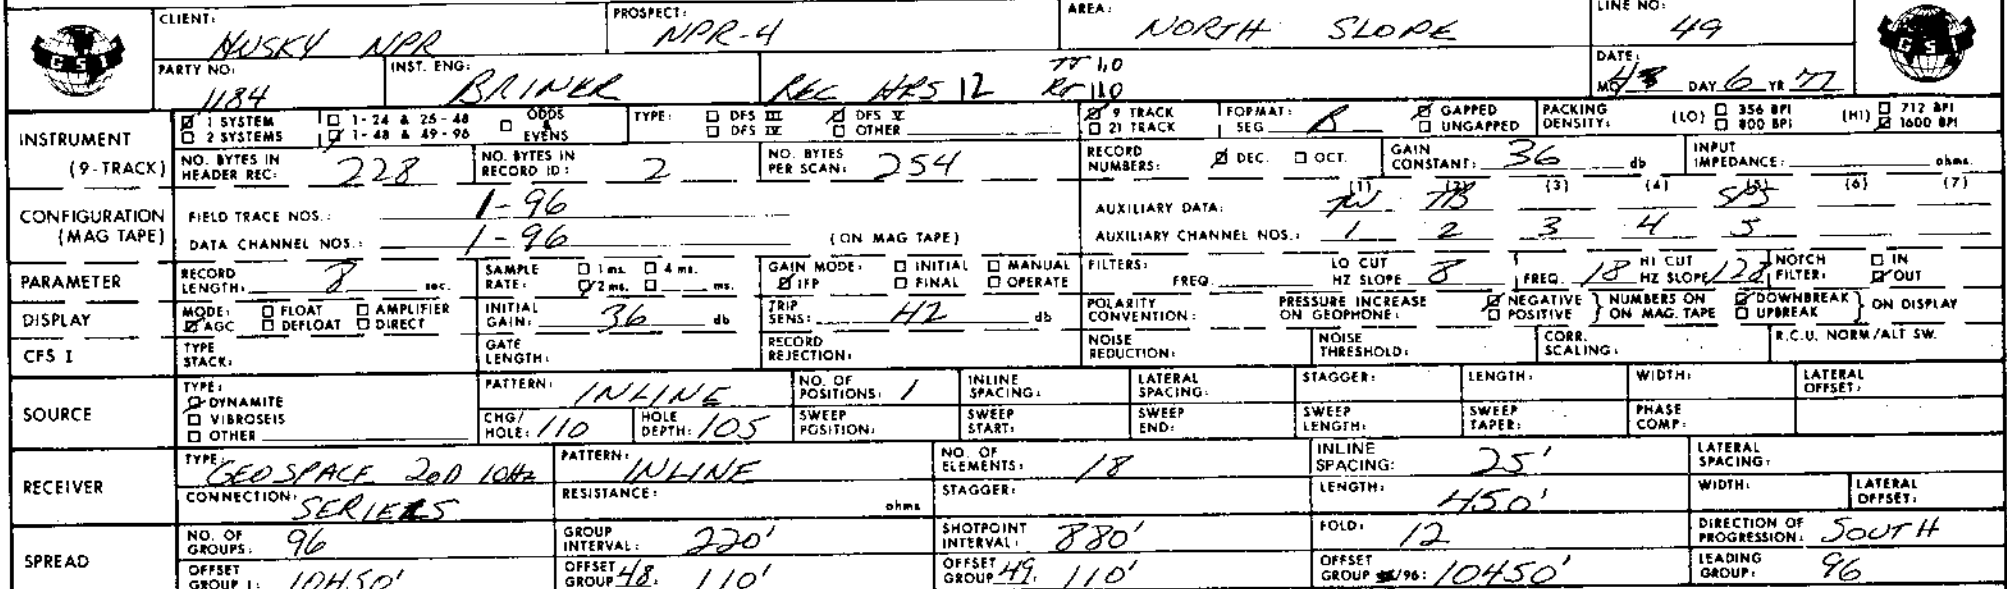 CLIENT: HUSKY NPR PROSPECT: NPR-4 AREA: NORTH SLOPE LINE NO: 49
GSI GSI
PARTY NO: 1184 INST. ENG: BRINER REC HRS 12 TT 1.0 DATE: DAY 6 YR 77
INSTRUMENT (9-TRACK) 1 SYSTEM 1-24 & 25-48 ODDS & EVENS TYPE: DFS III DFS V 9 TRACK FORMAT: SEG B GAPPED PACKING DENSITY: (LO) 356 BPI (HI) 712 BPI
2 SYSTEMS 1-48 & 49-96 DFS IV OTHER 21 TRACK UNGAPPED 800 BPI 1600 BPI
NO. BYTES IN HEADER REC: 228 NO. BYTES IN RECORD ID: 2 NO. BYTES PER SCAN: 254 RECORD NUMBERS: DEC. OCT. GAIN CONSTANT: 36 db INPUT IMPEDANCE: ohms.
CONFIGURATION (MAG TAPE) FIELD TRACE NOS.: 1-96 AUXILIARY DATA: (1) (2) TB (3) (4) (5) (6) (7)
DATA CHANNEL NOS.: 1-96 (ON MAG TAPE) AUXILIARY CHANNEL NOS.: 1 2 3 4 5
PARAMETER RECORD LENGTH: 8 sec. SAMPLE RATE: 1 ms. 4 ms. 2 ms. ms. GAIN MODE: INITIAL MANUAL IFP FINAL OPERATE FILTERS: FREQ. LO CUT HZ SLOPE 8 FREQ. 18 HI CUT HZ SLOPE 128 NOTCH FILTER: IN OUT
DISPLAY MODE: FLOAT AMPLIFIER AGC DEFLOAT DIRECT INITIAL GAIN: 36 db TRIP SENS: 42 db POLARITY CONVENTION: PRESSURE INCREASE ON GEOPHONE: NEGATIVE POSITIVE } NUMBERS ON ON MAG. TAPE DOWNBREAK UPBREAK } ON DISPLAY
CFS I TYPE STACK: GATE LENGTH: RECORD REJECTION: NOISE REDUCTION: NOISE THRESHOLD: CORR. SCALING: R.C.U. NORM/ALT SW.
SOURCE TYPE: DYNAMITE VIBROSEIS OTHER PATTERN: INLINE NO. OF POSITIONS: 1 INLINE SPACING: LATERAL SPACING: STAGGER: LENGTH: WIDTH: LATERAL OFFSET:
CHG/HOLE: 110 HOLE DEPTH: 105 SWEEP POSITION: SWEEP START: SWEEP END: SWEEP LENGTH: SWEEP TAPER: PHASE COMP:
RECEIVER TYPE: GEOSPACE 20D 10Hz PATTERN: INLINE NO. OF ELEMENTS: 18 INLINE SPACING: 25' LATERAL SPACING:
CONNECTION: SERIERS RESISTANCE: ohms STAGGER: LENGTH: 450' WIDTH: LATERAL OFFSET:
SPREAD NO. OF GROUPS: 96 GROUP INTERVAL: 220' SHOTPOINT INTERVAL: 880' FOLD: 12 DIRECTION OF PROGRESSION: SOUTH
OFFSET GROUP 1: 10450' OFFSET GROUP 48: 110' OFFSET GROUP 49: 110' OFFSET GROUP /96: 10450' LEADING GROUP: 96